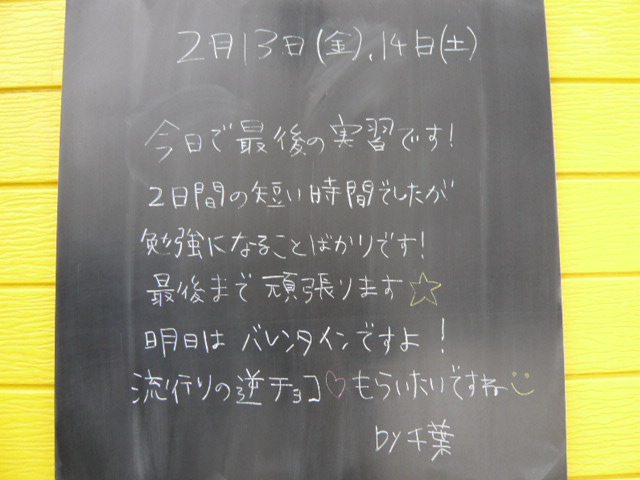 2月13日(金).14日(土)
今日で最後の実習です!
2日間の短い時間でしたが
勉強になることばかりです!
最後まで頑張ります☆
明日はバレンタインですよ!
流行りの逆チョコ♡もらいたいですね
by千葉